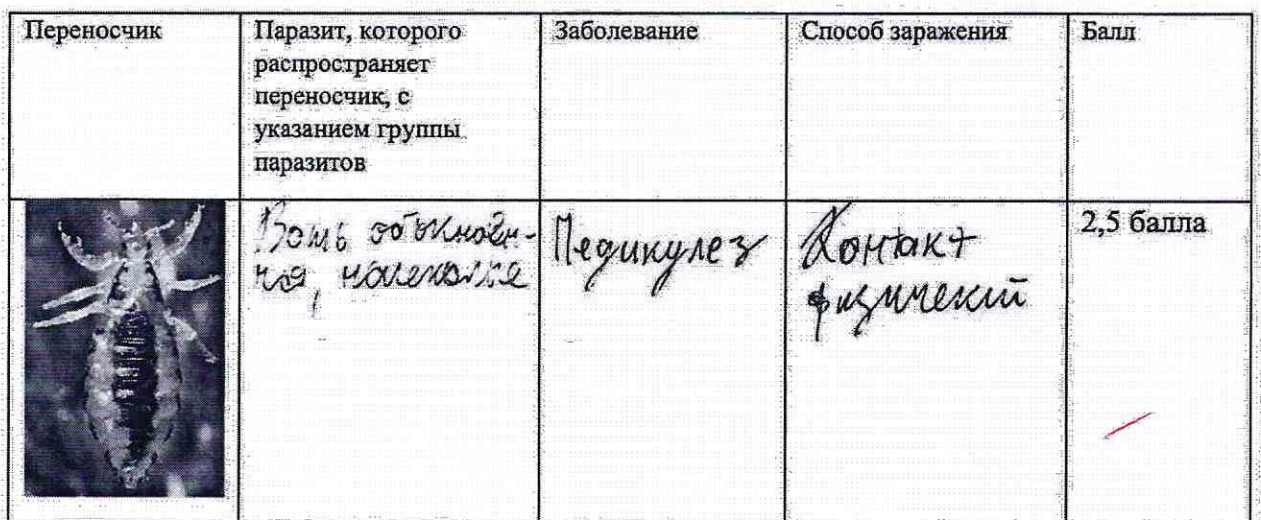 Переносчик
Паразит, которого
распространяет
переносчик, с
указанием группы
паразитов
Заболевание
Способ заражения
Балл
Вошь обыкновен-
ная, насекомое
Педикулез
Контакт
физический
2,5 балла